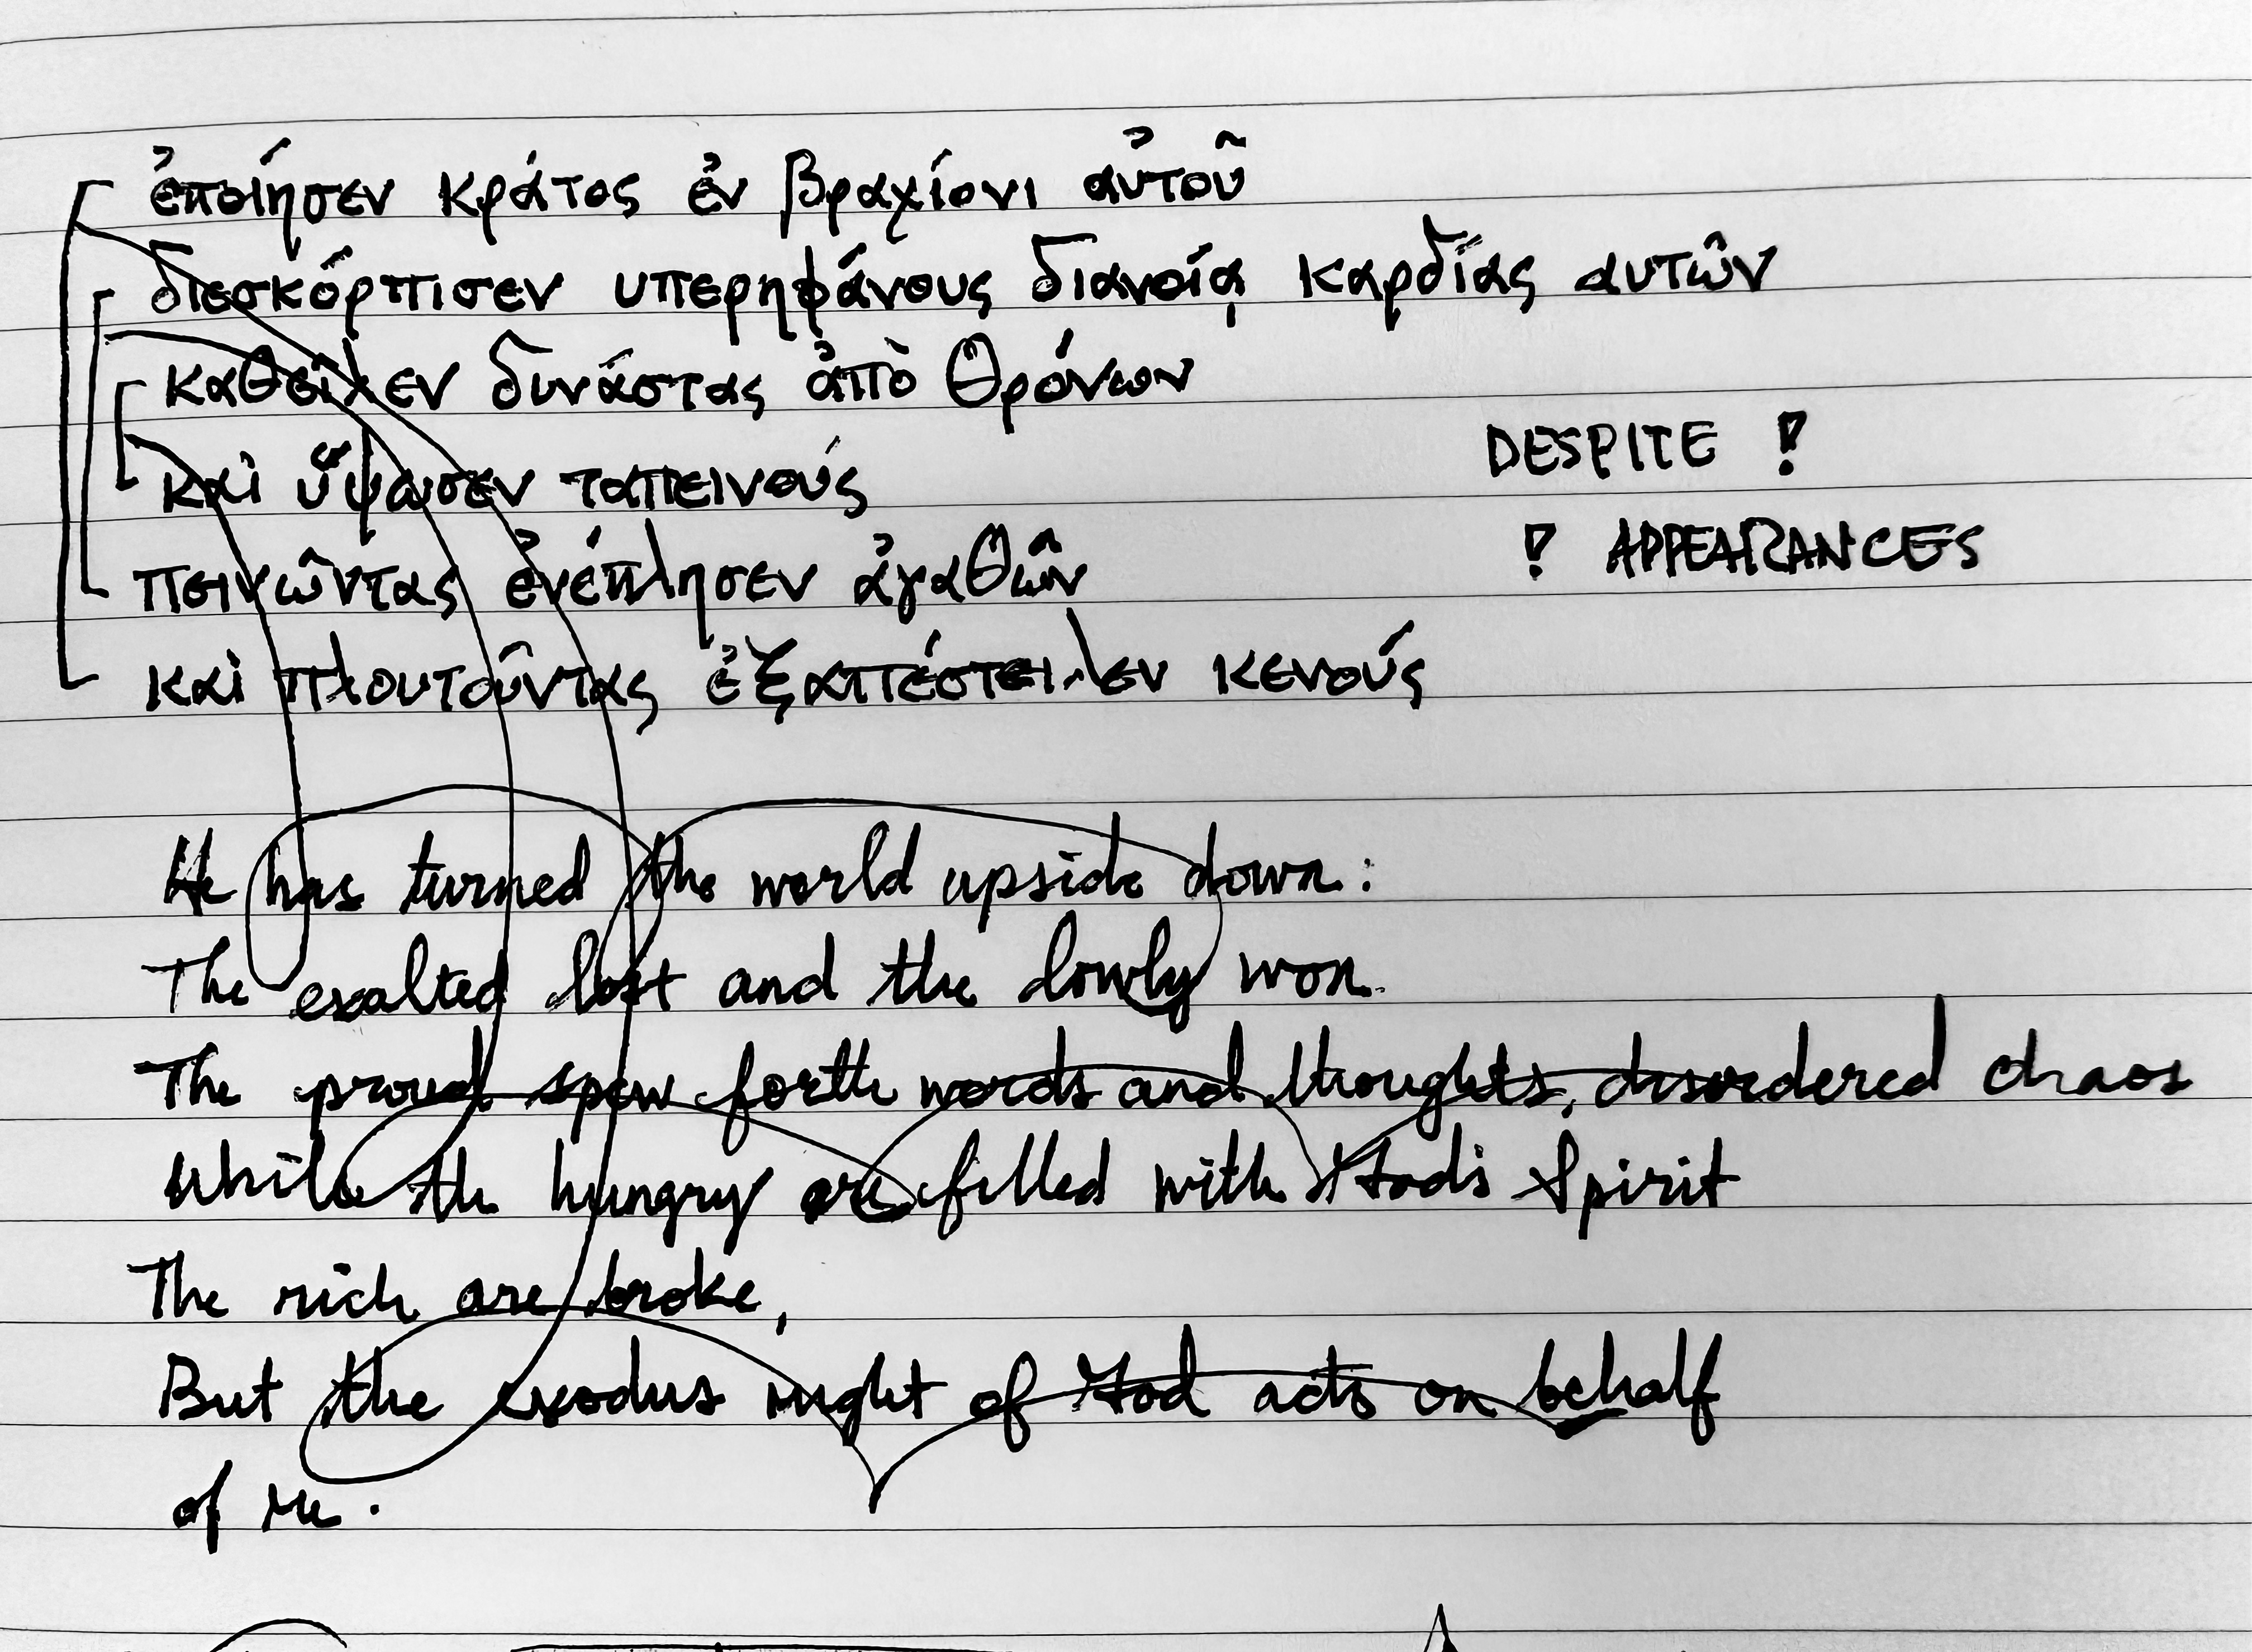 ἐποίησεν κράτος ἐν βραχίονι αὐτοῦ
διεσκόρπισεν υπερηφάνους διανοίᾳ καρδίας αυτῶν
καθεῖλεν δυνάστας ἀπὸ θρόνων
DESPITE !
καὶ ὕψωσεν ταπεινούς
! APPEARANCES
πεινῶντας ἐνέπλησεν ἀγαθῶν
καὶ πλουτοῦντας ἐξαπέστειλεν κενούς
He has turned the world upside down:
The exalted lost and the lowly won.
The proud spew forth words and thoughts, disordered chaos
While the hungry are filled with God's Spirit
The rich are broke,
But the exodus might of God acts on behalf
of me.